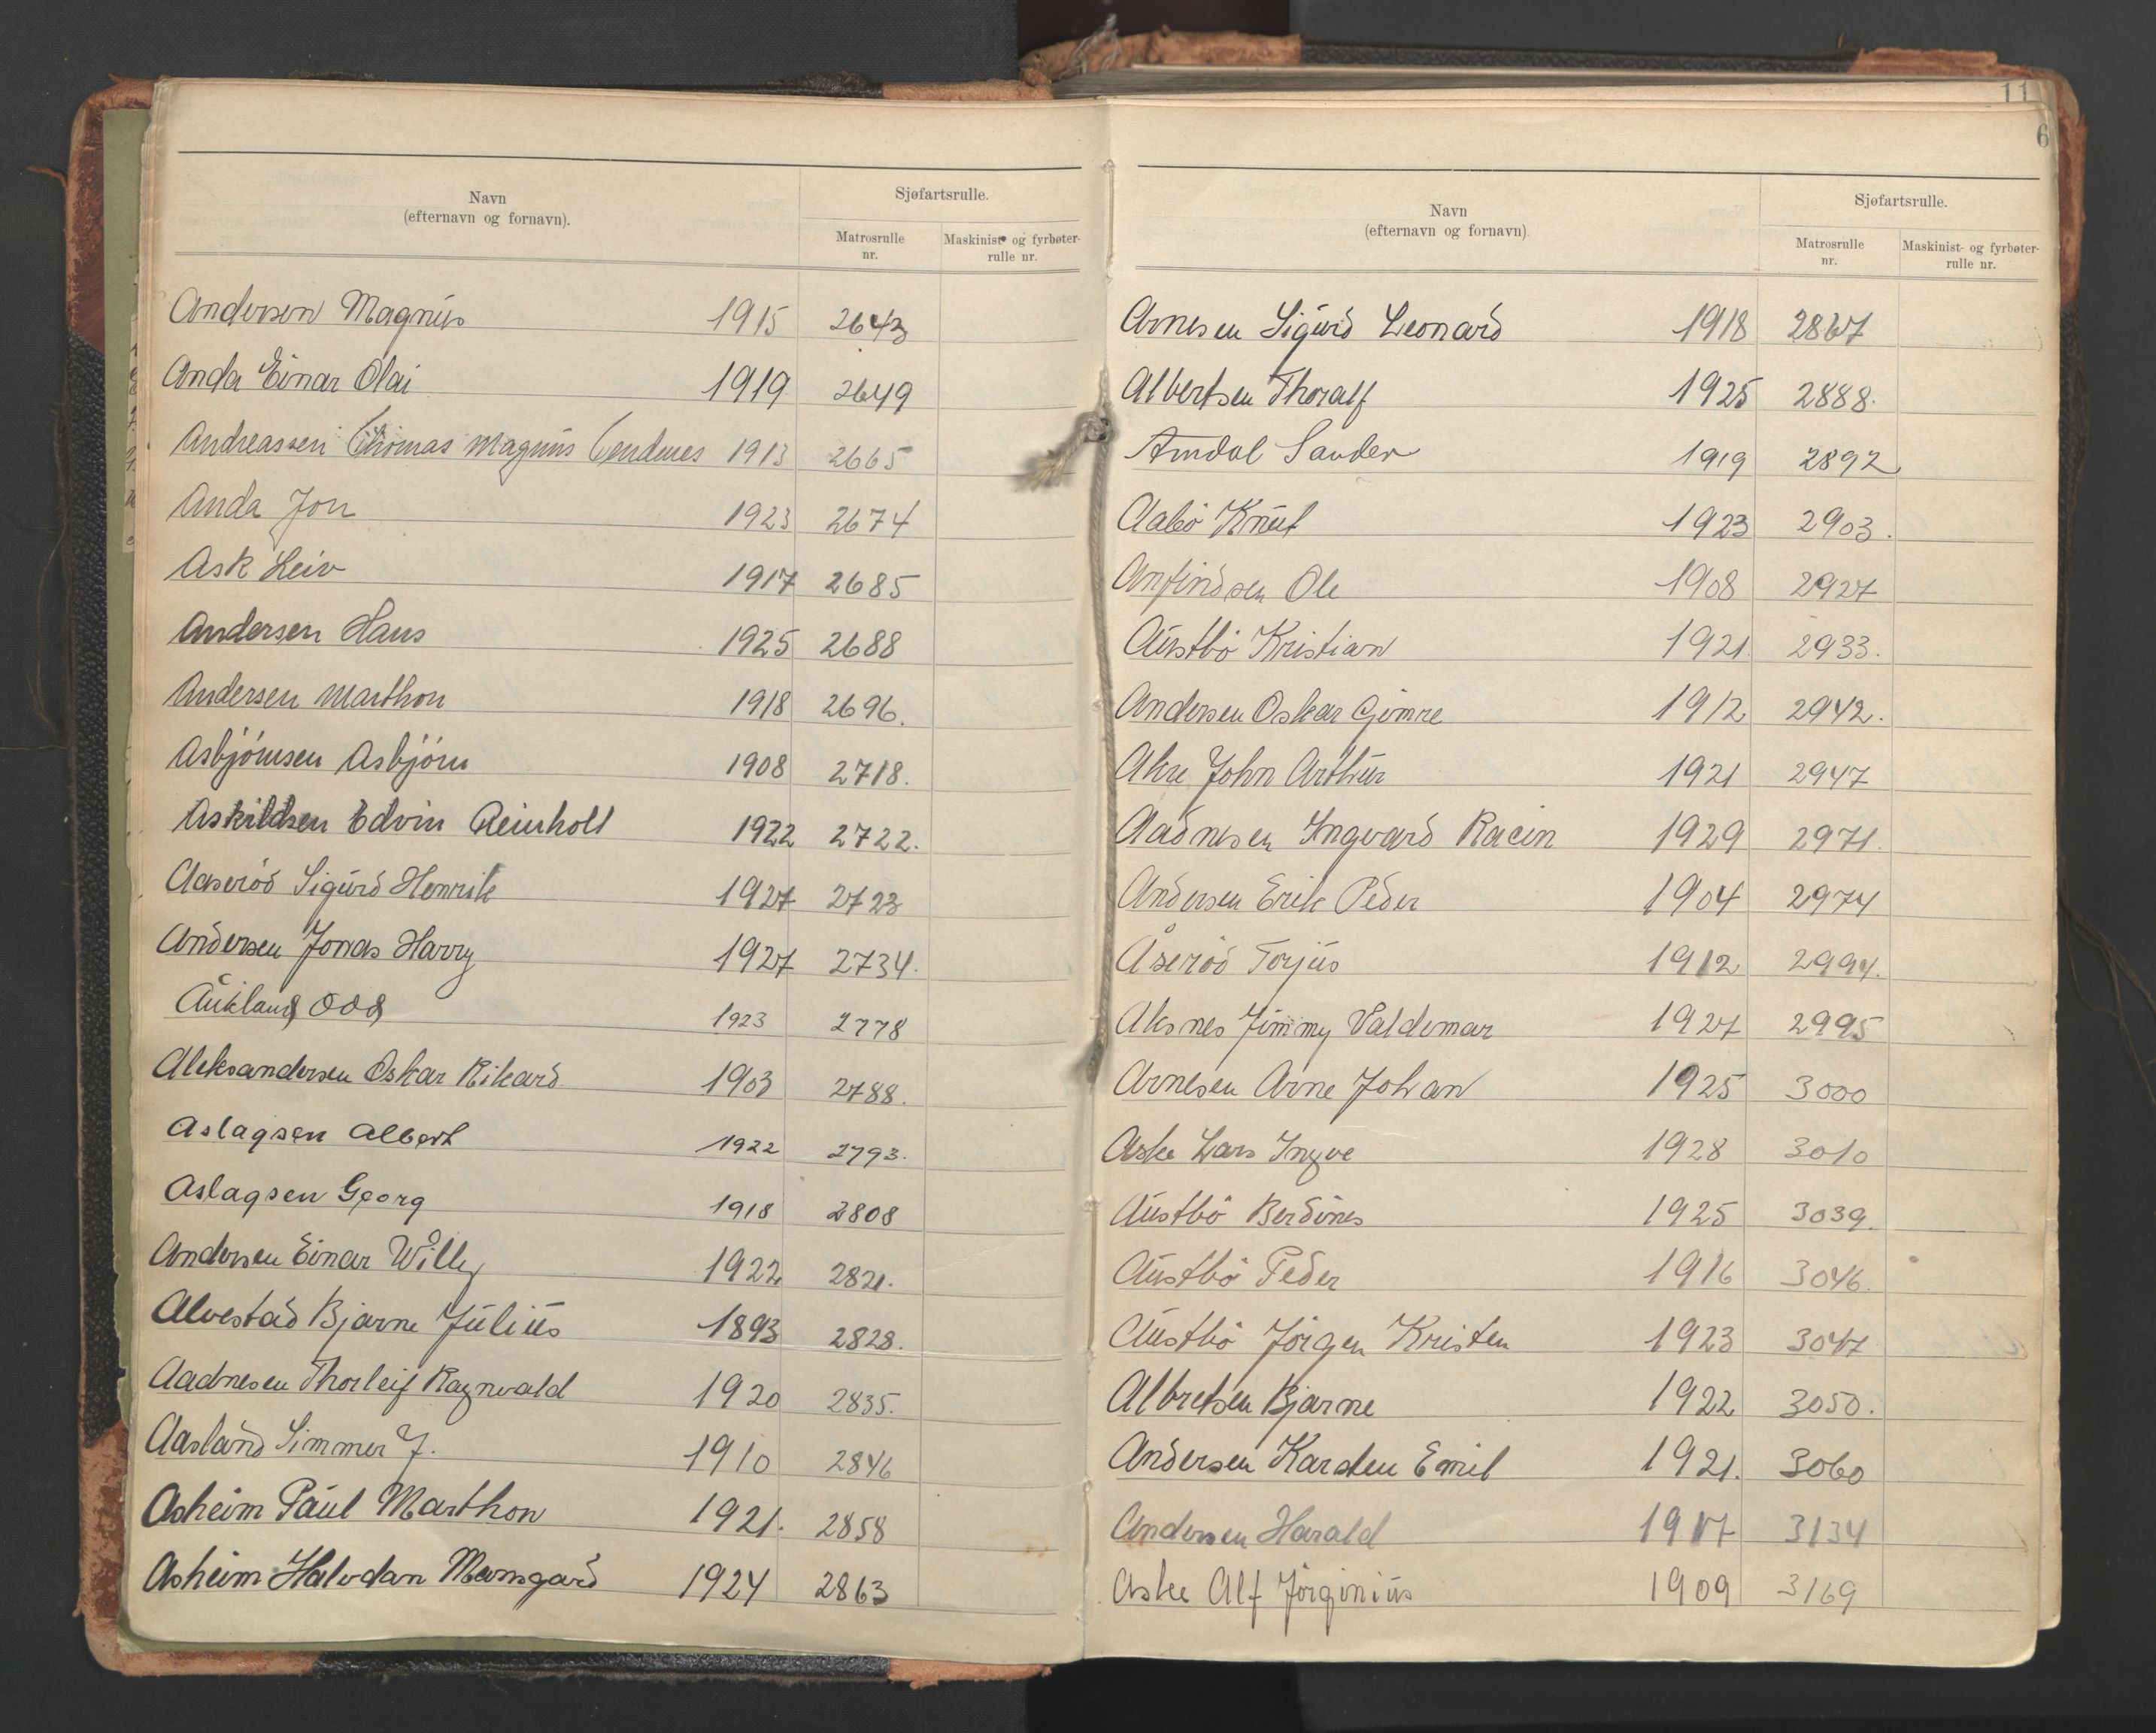 Navn
(efternavn og fornavn).
Sjøfartsrulle.
Matrosrulle
nr.
Maskinist- og fyrbøter-
rulle nr.
Andersen Magnus 1915 2643
Anda Einar Olai 1919 2649
Andreassen Thomas Magnus 1913 2665
Anda Jon 1923 2674
Ask Leiv 1917 2685
Andersen Hans 1925 2688
Andersen Marthon 1918 2696.
Asbjörnsen Asbjörn 1908 2718.
Askildsen Edvin Reinholl 1922 2722.
Aaseröd Sigurd Henrik 1927 2723
Andersen Jonas Harry 1927 2734.
Aukland Odd 1923 2778
Aleksandersen Oskar Rikard 1903 2788.
Aslagsen Albert 1922 2793.
Aslagsen Georg 1918 2808
Andersen Einar Willy 1922 2821.
Alvestad Bjarne Julius 1893 2828.
Aadnesen Thorleif Ragnvald 1920 2835.
Aasland Simmer J. 1910 2846
Asheim Paul Marthon 1921. 2858
Asheim Halvdan Mornsgard 1924 2863
11
6
Navn
(efternavn og fornavn)
Sjøfartsrulle.
Matrosrulle
nr.
Maskinist- og fyrbøter-
rulle nr.
Arnesen Sigurd Leonard 1918 2867
Albertsen Thoralf 1925 2888.
Amdal Sander 1919 2892
Aabö Knut 1923 2903.
Anfindsen Ole 1908 2927
Austbö Kristian 1921. 2933.
Andersen Oskar Gimre 1912 2942.
Akre John Arthur 1921 2947
Aadnesen Ingvard Racin 1929 2971.
Andersen Erik Peder 1904 2974
Åseröd Torjus 1912 2994.
Aksnes Jimmy Valdemar 1927 2995
Arnesen Arne Johan 1925 3000
Aske Lars Ingve 1928 3010
Austbö Berdines 1925 3039.
Austbö Peder 1916 3046.
Austbö Jörgen Kristen 1923 3047
Albretsen Bjarne 1922 3050.
Andersen Karsten Emil 1921. 3060
Andersen Harald 1917 3134
Aske Alf Jörginius 1909 3169